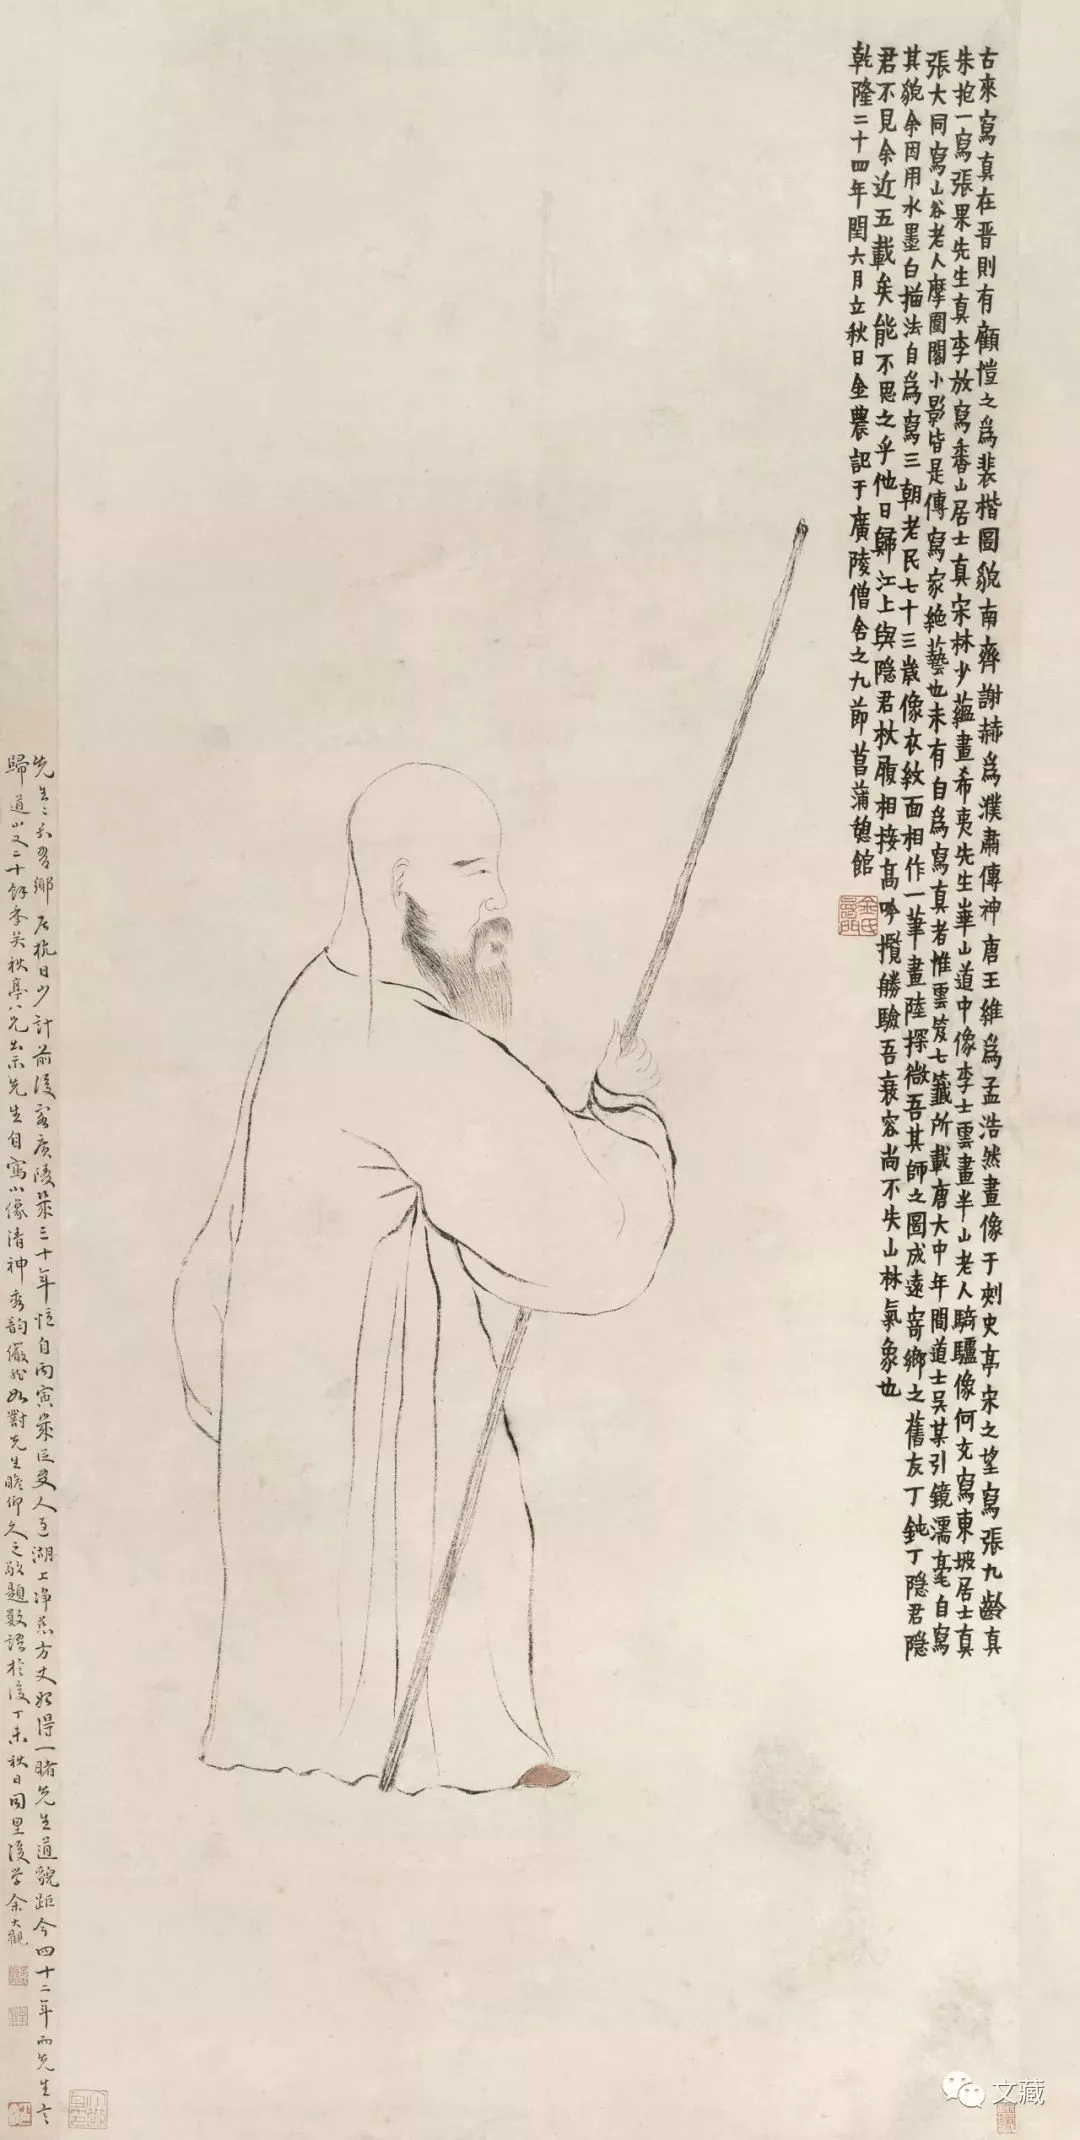 古來寫真在晋則有顧愷之爲裴楷圖貌南齊謝赫爲濮肅傳神唐王維爲孟浩然畫像于刺史亭宋之望寫張九齡真
朱抱一寫張果先生真李放寫香山居士真宋林少蘊畫希夷先生華山道中像李士雲畫半山老人騎驢像何充寫東坡居士真
張大同寫山谷老人摩圍閣小影皆是傳寫家絶藝也未有自爲寫真者惟雲笈七籤所載唐大中年間道士吴某引鏡濡毫自寫
其貌余因用水墨白描法自爲寫三朝老民七十三歲像衣紋面相作一筆畫陸探微吾其師之圖成遠寄鄉之舊友丁鈍丁隱君隱
君不見余近五載矣能不思之乎他日歸江上與隱君杖履相接高吟攬勝驗吾衰容尚不失山林氣象也
乾隆二十四年閏六月立秋日金農記于廣陵僧舍之九節菖蒲憩館
金氏壽門
先生吾鄉居杭日少計前後客廣陵幾三十年憶自丙寅歲友人過湖上淨慈方丈始得一睹先生道貌距今四十二年而先生之
歸道山又二十餘年矣秋亭八兄出示先生自寫小像清神秀韵儼然如對先生瞻仰久之敬題數語於後丁未秋日同里後學余大觀
文藏